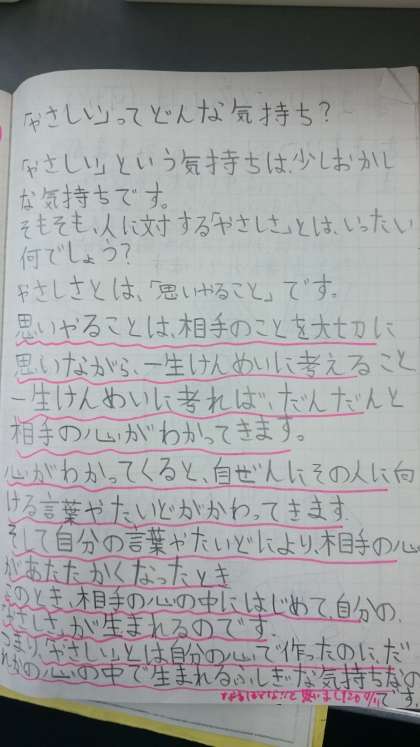 「やさしい」ってどんな気持ち?
「やさしい」という気持ちは、少しおかし
な気持ちです。
そもそも、人に対する「やさしさ」とは、いったい
何でしょう?
やさしさとは、「思いやること」です。
思いやることは、相手のことを大切に
思いながら、一生けんめいに考えること
一生けんめいに考れば、だんだんと
相手の心がわかってきます。
心がわかってくると、自ぜんにその人に向
ける言葉やたいどがかわってきます
そして自分の言葉やたいどにより、相手の心
があたたかくなったとき
このとき、相手の心の中にはじめて、自分の、
やさしさ、が生まれるのです
つまり、「やさしい」とは自分の心、で作ったのに、だ
れかの心の中で生まれるふしぎな気持ちなの
です
なるほどな〜と思いました